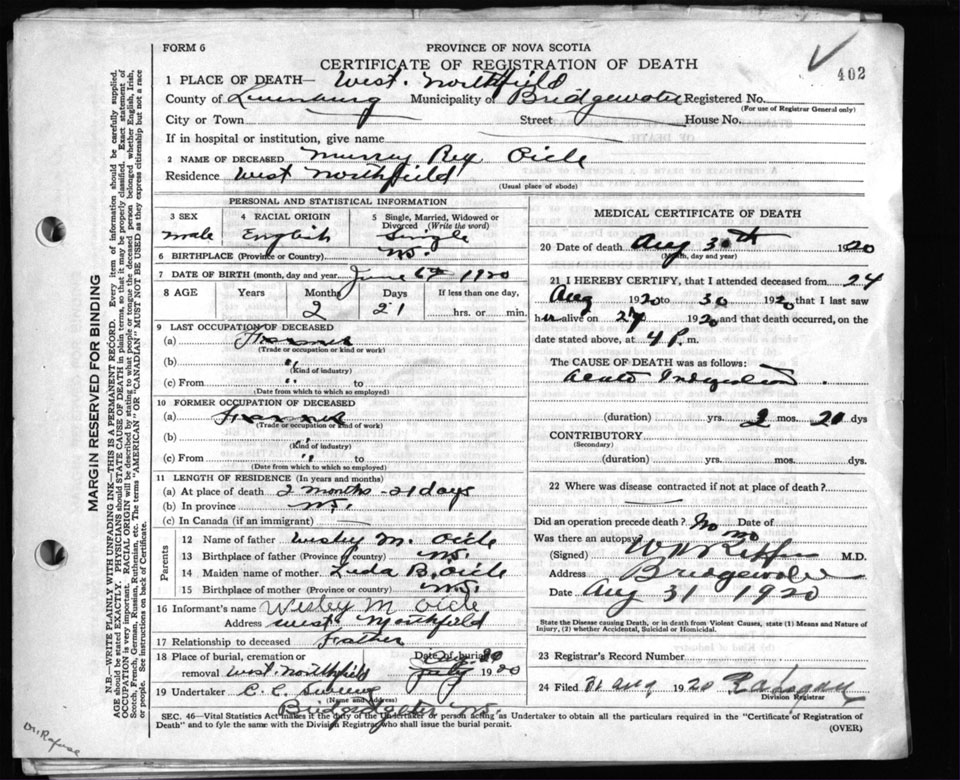 FORM 6
PROVINCE OF NOVA SCOTIA
CERTIFICATE OF REGISTRATION OF DEATH
402
1 PLACE OF DEATH— West. Northfield
County of Lunenburg Municipality of Bridgewater Registered No.
(For use of Registrar General only)
City or Town Street House No.
If in hospital or institution, give name
2 NAME OF DECEASED Murray Rex Oicle
Residence West Northfield
(Usual place of abode)
PERSONAL AND STATISTICAL INFORMATION
3 SEX 4 RACIAL ORIGIN 5 Single, Married, Widowed or Divorced (Write the word)
male English Single
6 BIRTHPLACE (Province or Country) N.S.
7 DATE OF BIRTH (month, day and year) June 6th 1920
8 AGE Years Months Days If less than one day,
2 21 hrs. or min.
9 LAST OCCUPATION OF DECEASED
(a)
(Trade or occupation or kind or work)
(b) "
(Kind of industry)
(c) From " to
(Date from which to which so employed)
10 FORMER OCCUPATION OF DECEASED
(a)
(Trade or occupation or kind of work)
(b) "
(Kind of industry)
(c) From " to
(Date from which to which so employed)
11 LENGTH OF RESIDENCE (In years and months)
(a) At place of death 2 months - 21 days
(b) In province N.S.
(c) In Canada (if an immigrant)
Parents
12 Name of father Wesley M. Oicle
13 Birthplace of father (Province of country) N.S.
14 Maiden name of mother. Leda B. Oicle
15 Birthplace of mother (Province or country) N.S.
16 Informant's name Wesley M Oicle
Address West Northfield
17 Relationship to deceased Father
18 Place of burial, cremation or Date of burial
removal West Northfield 1920
19 Undertaker C. C.
(Name and address)
Bridgewater N.S.
MEDICAL CERTIFICATE OF DEATH
20 Date of death Aug 30th 1920
(Month, day and year)
21 I HEREBY CERTIFY, that I attended deceased from 24
Aug 1920 to 30 1920 that I last saw
h alive on 27 1920 and that death occurred, on the
date stated above, at 4 P. m.
The CAUSE OF DEATH was as follows:
Acute Indigestion
(duration) yrs. mos. dys
CONTRIBUTORY
(Secondary)
(duration) yrs. mos. dys.
22 Where was disease contracted if not at place of death?
Did an operation precede death? No Date of
Was there an autopsy? No
(Signed) M.D.
Address Bridgewater
Date Aug 31 1920
State the Disease causing Death, or in death from Violent Causes, state (1) Means and Nature of
Injury, (2) whether Accidental, Suicidal or Homicidal.
23 Registrar's Record Number
24 Filed 31 Aug 1920
Division Registrar
SEC. 46—Vital Statistics Act makes it the duty of the Undertaker or person acting as Undertaker to obtain all the particulars required in the "Certificate of Registration of
Death" and to fyle the same with the Division Registrar who shall issue the burial permit. (OVER)
MARGIN RESERVED FOR BINDING
N.B.—WRITE PLAINLY WITH UNFADING INK—THIS IS A PERMANENT RECORD. Every item of information should be carefully supplied.
AGE should be stated EXACTLY. PHYSICIANS should STATE CAUSE OF DEATH in plain terms, so that it may be properly classified. Exact statement of
OCCUPATION is very important. RACIAL ORIGIN will be described by stating to what people or tongue the deceased person belonged whether English, Irish,
Scotch, French, German, Russian, Ruthenian, etc. The terms "AMERICAN" OR "CANADIAN" MUST NOT BE USED as they express citizenship but not a race
or people. See instructions on back of Certificate.